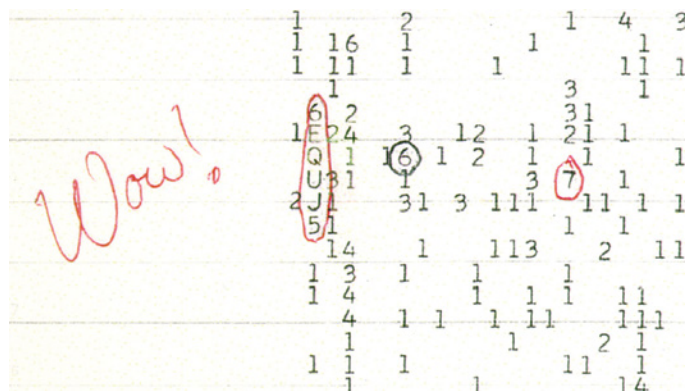 1 2 1 4 3
1 16 1 1 1
1 11 1 1 11 1
1 3 1
6 2 31
1 E 24 3 12 1 21 1
Wow! Q 1 16 1 2 1 1 1
U 31 1 3 7 1
2 J 1 31 3 111 11 1 1
5 1 1 1
14 1 113 2 11
1 3 1 1 1
1 4 1 1 1 11
4 1 1 1 11 111
1 1 2 1
1 1 1 11 1
1 1 14